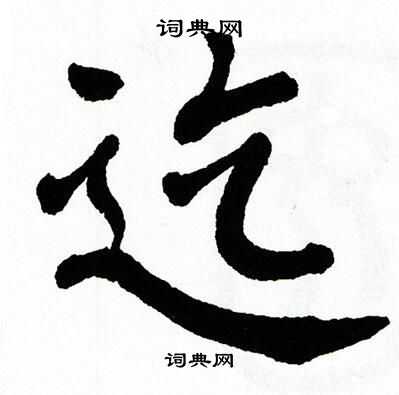 词典网
迄
词典网